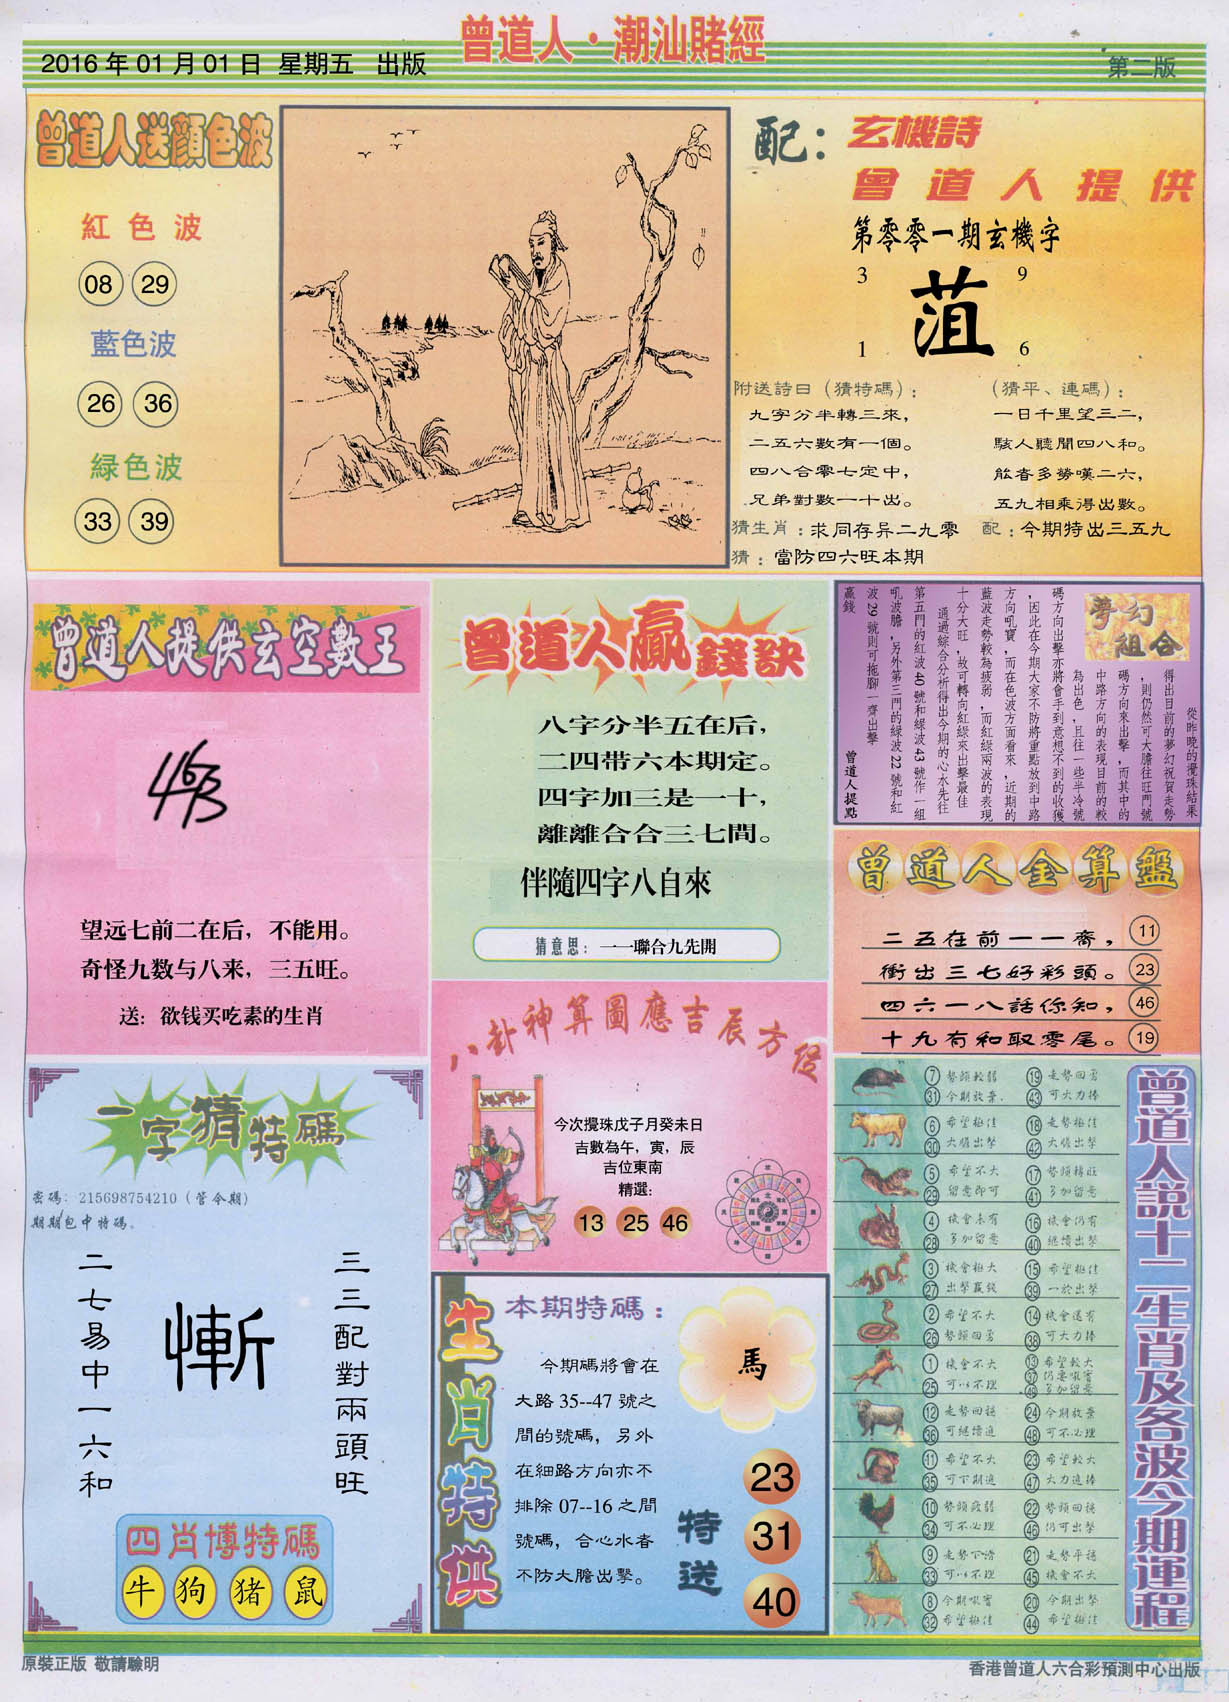 曾道人·潮汕賭經
2016年01月01日 星期五 出版
第二版
曾道人送顏色波
紅色波
08 29
藍色波
26 36
緑色波
33 39
配：玄機詩
曾道人提供
第零零一期玄機字
3 9
菹
1 6
附送詩曰（猜特碼）：
九字分半轉三來，
二五六數有一個。
四八合零七定中，
兄弟對數一十出。
（猜平、連碼）：
一日千里望三二，
駭人聽聞四八和。
能者多勞嘆二六，
五九相乘得出數。
猜生肖：求同存异二九零
配：今期特出三五九
猜：當防四六旺本期
曾道人提供玄空數王
463
望远七前二在后，不能用。
奇怪九数与八来，三五旺。
送：欲钱买吃素的生肖
曾道人贏錢訣
八字分半五在后，
二四带六本期定。
四字加三是一十，
離離合合三七間。
伴隨四字八自來
猜意思：一一聯合九先開
夢幻組合
從昨晚的攪珠結果
得出目前的夢幻祝賀走勢
，則仍然可大膽往旺門號
碼方向來出擊，而其中的
中路方向的表現目前的較
為出色，且往一些半冷號
碼方向出擊亦將會手到意想不到的收獲
，因此在今期大家不防將重點放到中路
方向吼寶，而在色波方面看來，近期的
藍波走勢較為疲弱，而紅綠兩波的表現
十分大旺，故可轉向紅綠來出擊最佳
通過綜合分析得出今期的心水先往
第五門的紅波40號和緑波43號作一組
吼波膽，另外第三門的綠波22號和紅
波29號則可拖腳一齊出擊
贏錢
曾道人提點
曾道人金算盤
二五在前一一齋，11
衝出三七好彩頭。23
四六一八話你知，46
十九有和取零尾。19
八卦神算圖應吉辰方位
今次攪珠戊子月癸未日
吉數為午，寅，辰
吉位東南
精選：
13 25 46
一字猜特碼
密碼：215698754210（管令期）
期期包中特碼。
三三配對兩頭旺
慚
二七易中一六和
四肖博特碼
牛 狗 猪 鼠
生肖特供
本期特碼：
今期碼將會在
大路35--47號之
間的號碼，另外
在細路方向亦不
排除07--16之間
號碼，合心水者
不防大膽出擊。
馬
特送
23
31
40
曾道人説十二生肖及各波今期運程
7 勢頭較弱 19 走勢回勇
31 今期放棄 43 可大力捧
6 希望極佳 18 走勢極佳
30 大膽出擊 42 大膽出擊
5 希望不大 17 勢頭轉旺
29 留意即可 41 多加留意
4 機會未有 16 機會仍有
28 多加留意 40 繼續出擊
3 機會極大 15 希望極佳
27 出擊贏錢 39 一於出擊
2 希望不大 14 機會還有
26 勢頭回勇 38 可大力捧
1 機會不大 13 希望較大
37 仍要吼實
25 可以不理 49 多加留意
12 走勢回穩 24 今期放棄
36 可繼續追 48 可不必理
11 希望不大 23 希望較大
35 可下期追 47 大力追捧
10 勢頭疲弱 22 勢頭回穩
34 可不必理 46 仍可出擊
9 走勢下滑 21 走勢平穩
33 可以不理 45 機會不大
8 今期吼實 20 今期出擊
32 希望極佳 44 希望極佳
原裝正版 敬請驗明
香港曾道人六合彩預測中心出版